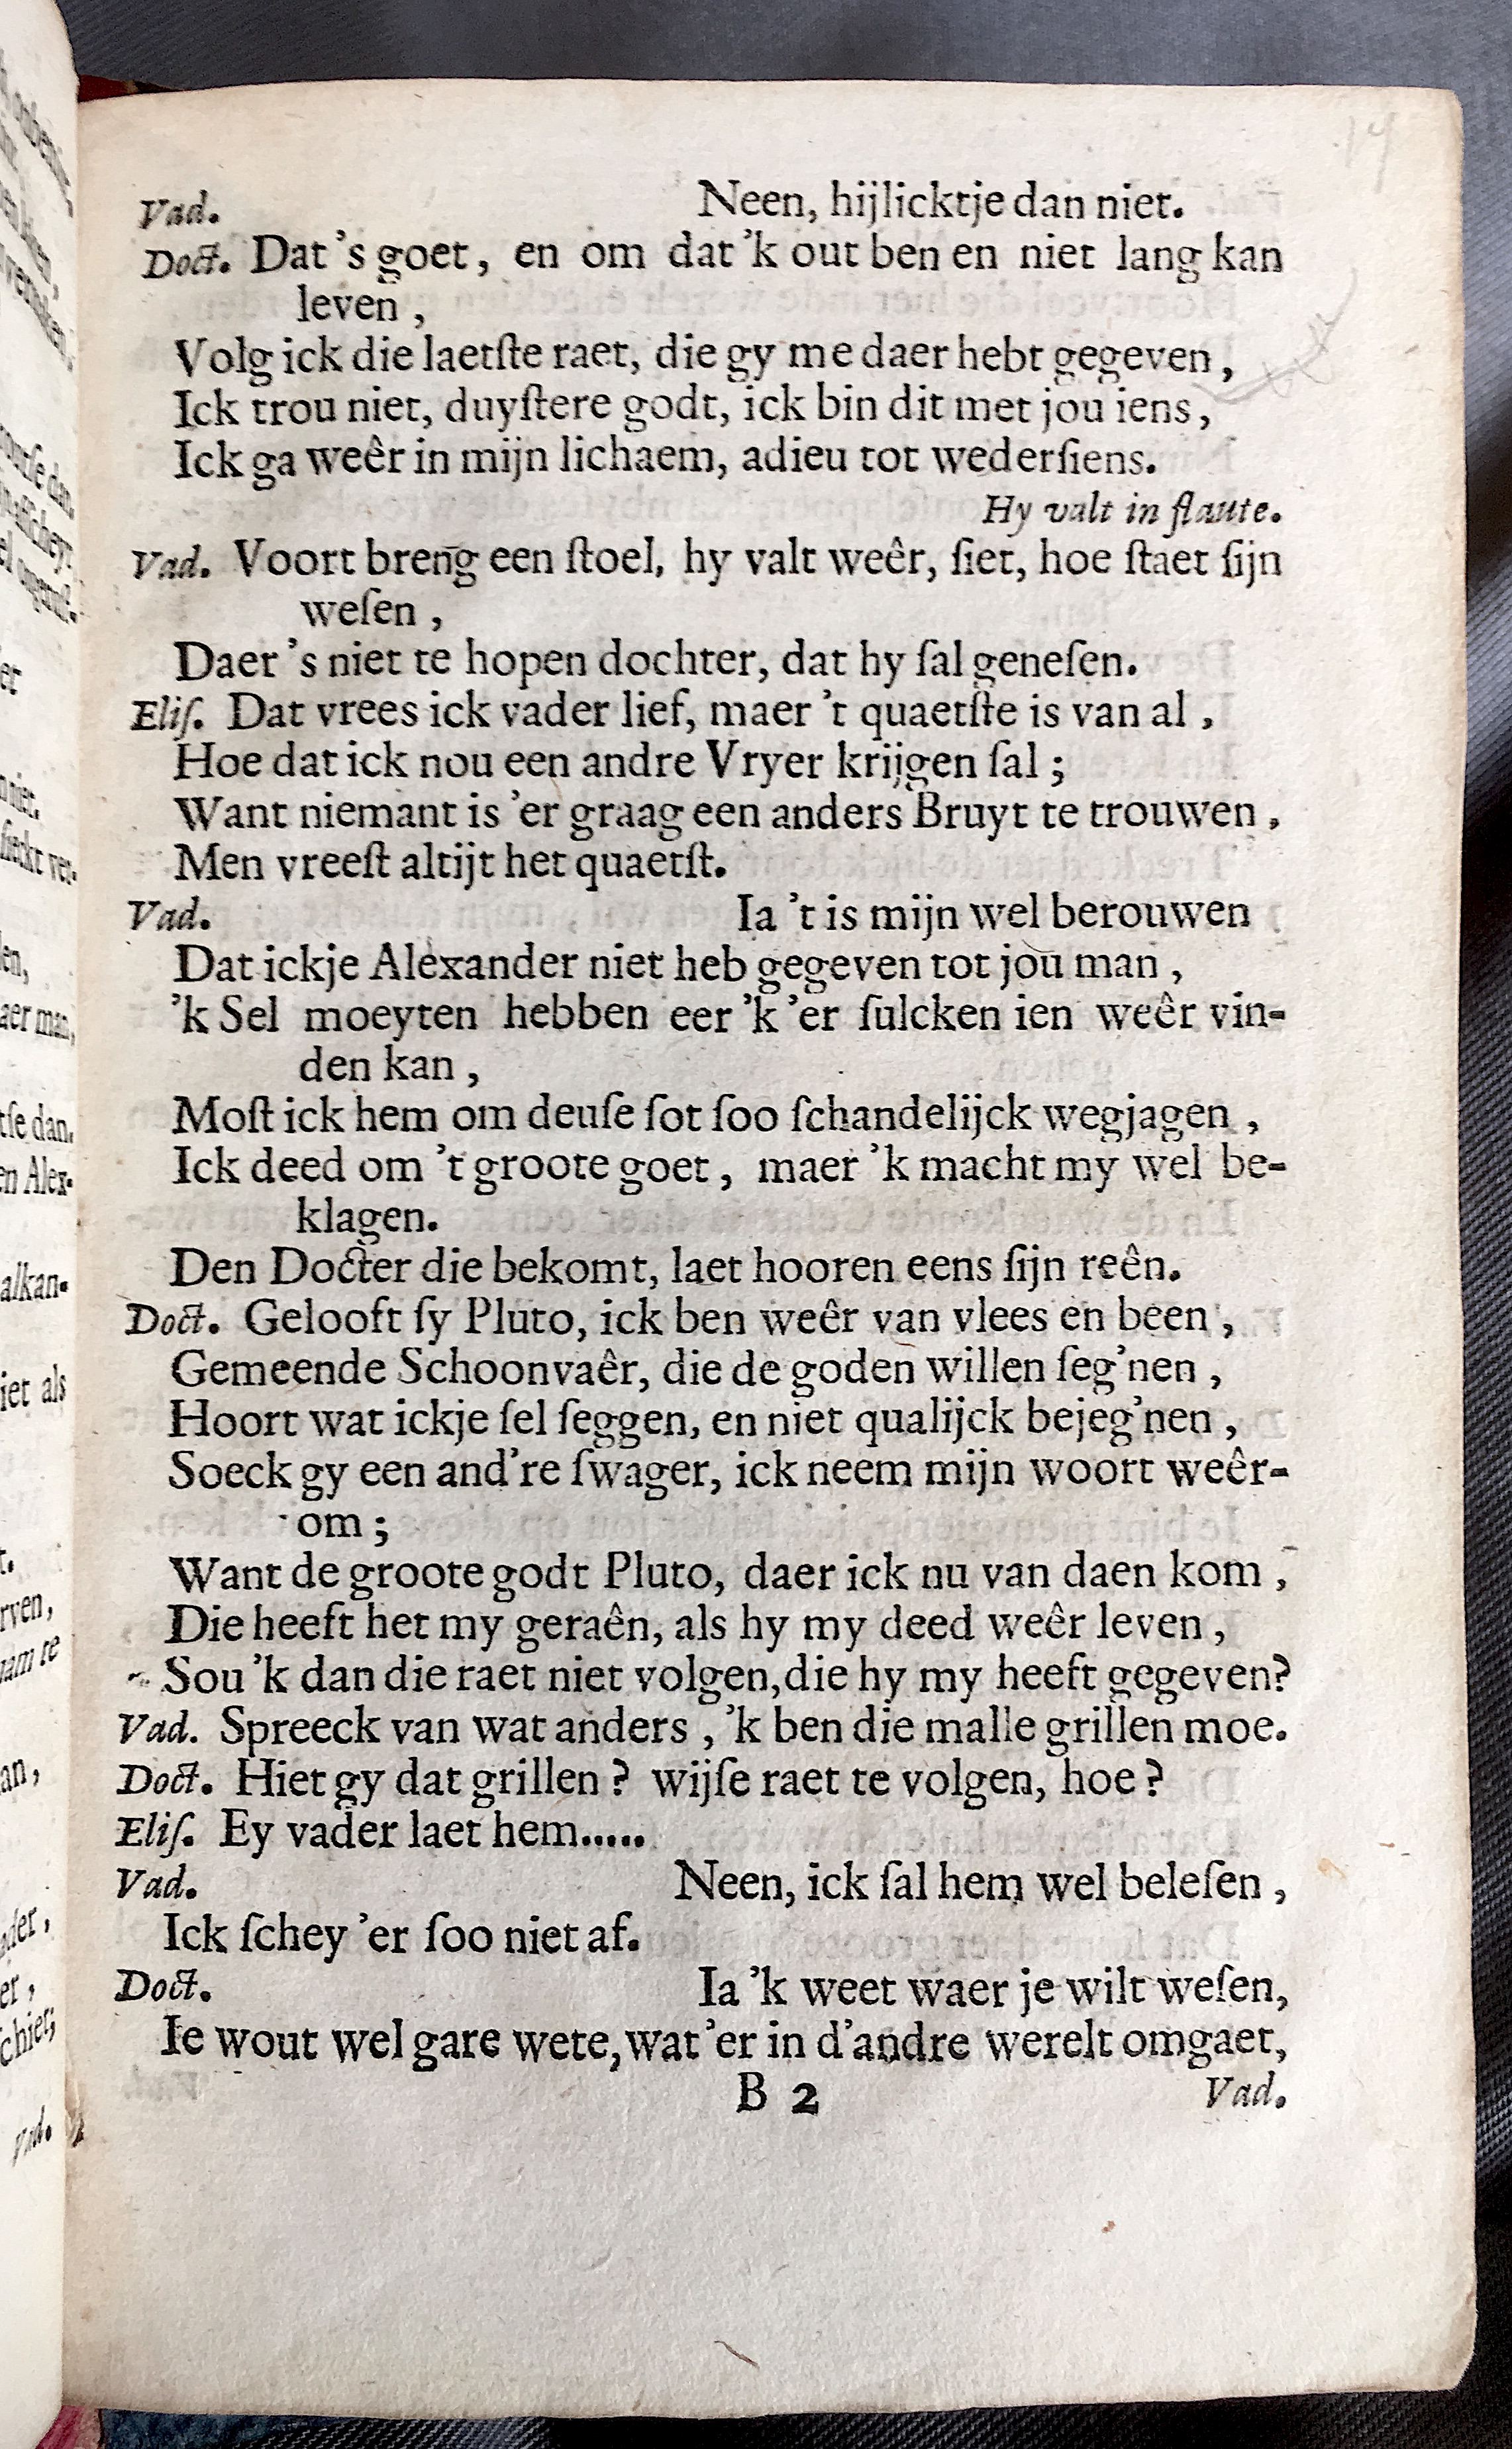 14
Vad. Neen, hijlicktje dan niet.
Doct. Dat 's goet, en om dat 'k out ben en niet lang kan
leven,
Volg ick die laetſte raet, die gy me daer hebt gegeven,
Ick trou niet, duyſtere godt, ick bin dit met jou iens,
Ick ga weêr in mijn lichaem, adieu tot wederſiens.
Hy valt in flaute.
Vad. Voort breng een ſtoel, hy valt weêr, ſiet, hoe ſtaet ſijn
weſen,
Daer 's niet te hopen dochter, dat hy ſal geneſen.
Eliſ. Dat vrees ick vader lief, maer 't quaetſte is van al,
Hoe dat ick nou een andre Vryer krijgen ſal;
Want niemant is 'er graag een anders Bruyt te trouwen,
Men vreeſt altijt het quaetſt.
Vad. Ia 't is mijn wel berouwen
Dat ickje Alexander niet heb gegeven tot jou man,
'k Sel moeyten hebben eer 'k 'er ſulcken ien weêr vin-
den kan,
Moſt ick hem om deuſe ſot ſoo ſchandelijck wegjagen,
Ick deed om 't groote goet, maer 'k macht my wel be-
klagen.
Den Docter die bekomt, laet hooren eens ſijn reên.
Doct. Gelooft ſy Pluto, ick ben weêr van vlees en been,
Gemeende Schoonvaêr, die de goden willen ſeg'nen,
Hoort wat ickje ſel ſeggen, en niet qualijck bejeg'nen,
Soeck gy een and're ſwager, ick neem mijn woort weêr-
om;
Want de groote godt Pluto, daer ick nu van daen kom,
Die heeft het my geraên, als hy my deed weêr leven,
Sou 'k dan die raet niet volgen, die hy my heeft gegeven?
Vad. Spreeck van wat anders, 'k ben die malle grillen moe.
Doct. Hiet gy dat grillen? wijſe raet te volgen, hoe?
Eliſ. Ey vader laet hem.....
Vad. Neen, ick ſal hem wel beleſen,
Ick ſchey 'er ſoo niet af.
Doct. Ia 'k weet waer je wilt weſen,
Ie wout wel gare wete, wat 'er in d'andre werelt omgaet,
B 2 Vad.